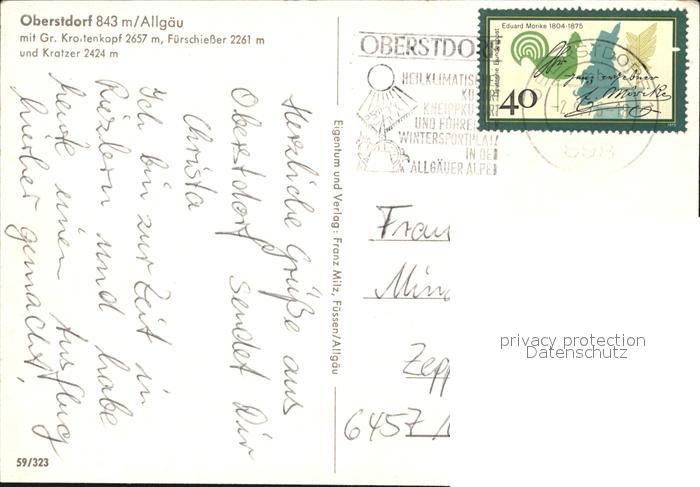 Oberstdorf 843 m/Allgäu
mit Gr. Krottenkopf 2657 m, Fürschießer 2261 m
und Kratzer 2424 m
Herzliche Grüße aus
Oberstdorf sendet Dir
Christa
Ich bin zur Zeit in
Riezlern und habe
heute einen Ausflug
hierher gemacht.
59/323
Eigentum und Verlag: Franz Milz, Füssen/Allgäu
OBERSTDORF
HEILKLIMATISCHER
KURORT
KNEIPPKURORT
UND FÜHREN
WINTERSPORTPLATZ
IN DEN
ALLGÄUER ALPEN
Eduard Mörike 1804-1875
Deutsche Bundespost
40
OBERSTDORF
898
Frau
Min
Zepp
6457
privacy protection
Datenschutz